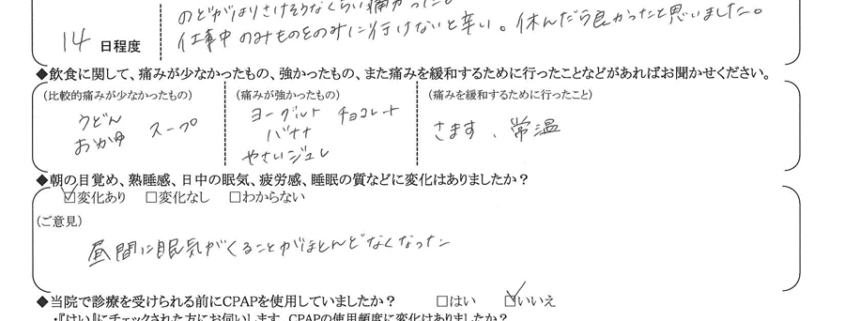 のどがはりさけそうなくらい痛かった。
14 日程度
仕事中のみものをのみに行けないと辛い。休んだら良かったと思いました。
◆飲食に関して、痛みが少なかったもの、強かったもの、また痛みを緩和するために行ったことなどがあればお聞かせください。
(比較的痛みが少なかったもの) (痛みが強かったもの) (痛みを緩和するために行ったこと)
うどん スープ ヨーグルト チョコレート さます、常温
おかゆ バナナ
やさいジュレ
◆朝の目覚め、熟睡感、日中の眠気、疲労感、睡眠の質などに変化はありましたか？
☑変化あり □変化なし □わからない
(ご意見)
昼間に眠気がくることがほとんどなくなった
◆当院で診療を受けられる前にCPAPを使用していましたか？ □はい ☑いいえ
・『はい』にチェックされた方にお伺いします。CPAPの使用頻度に変化はありましたか？